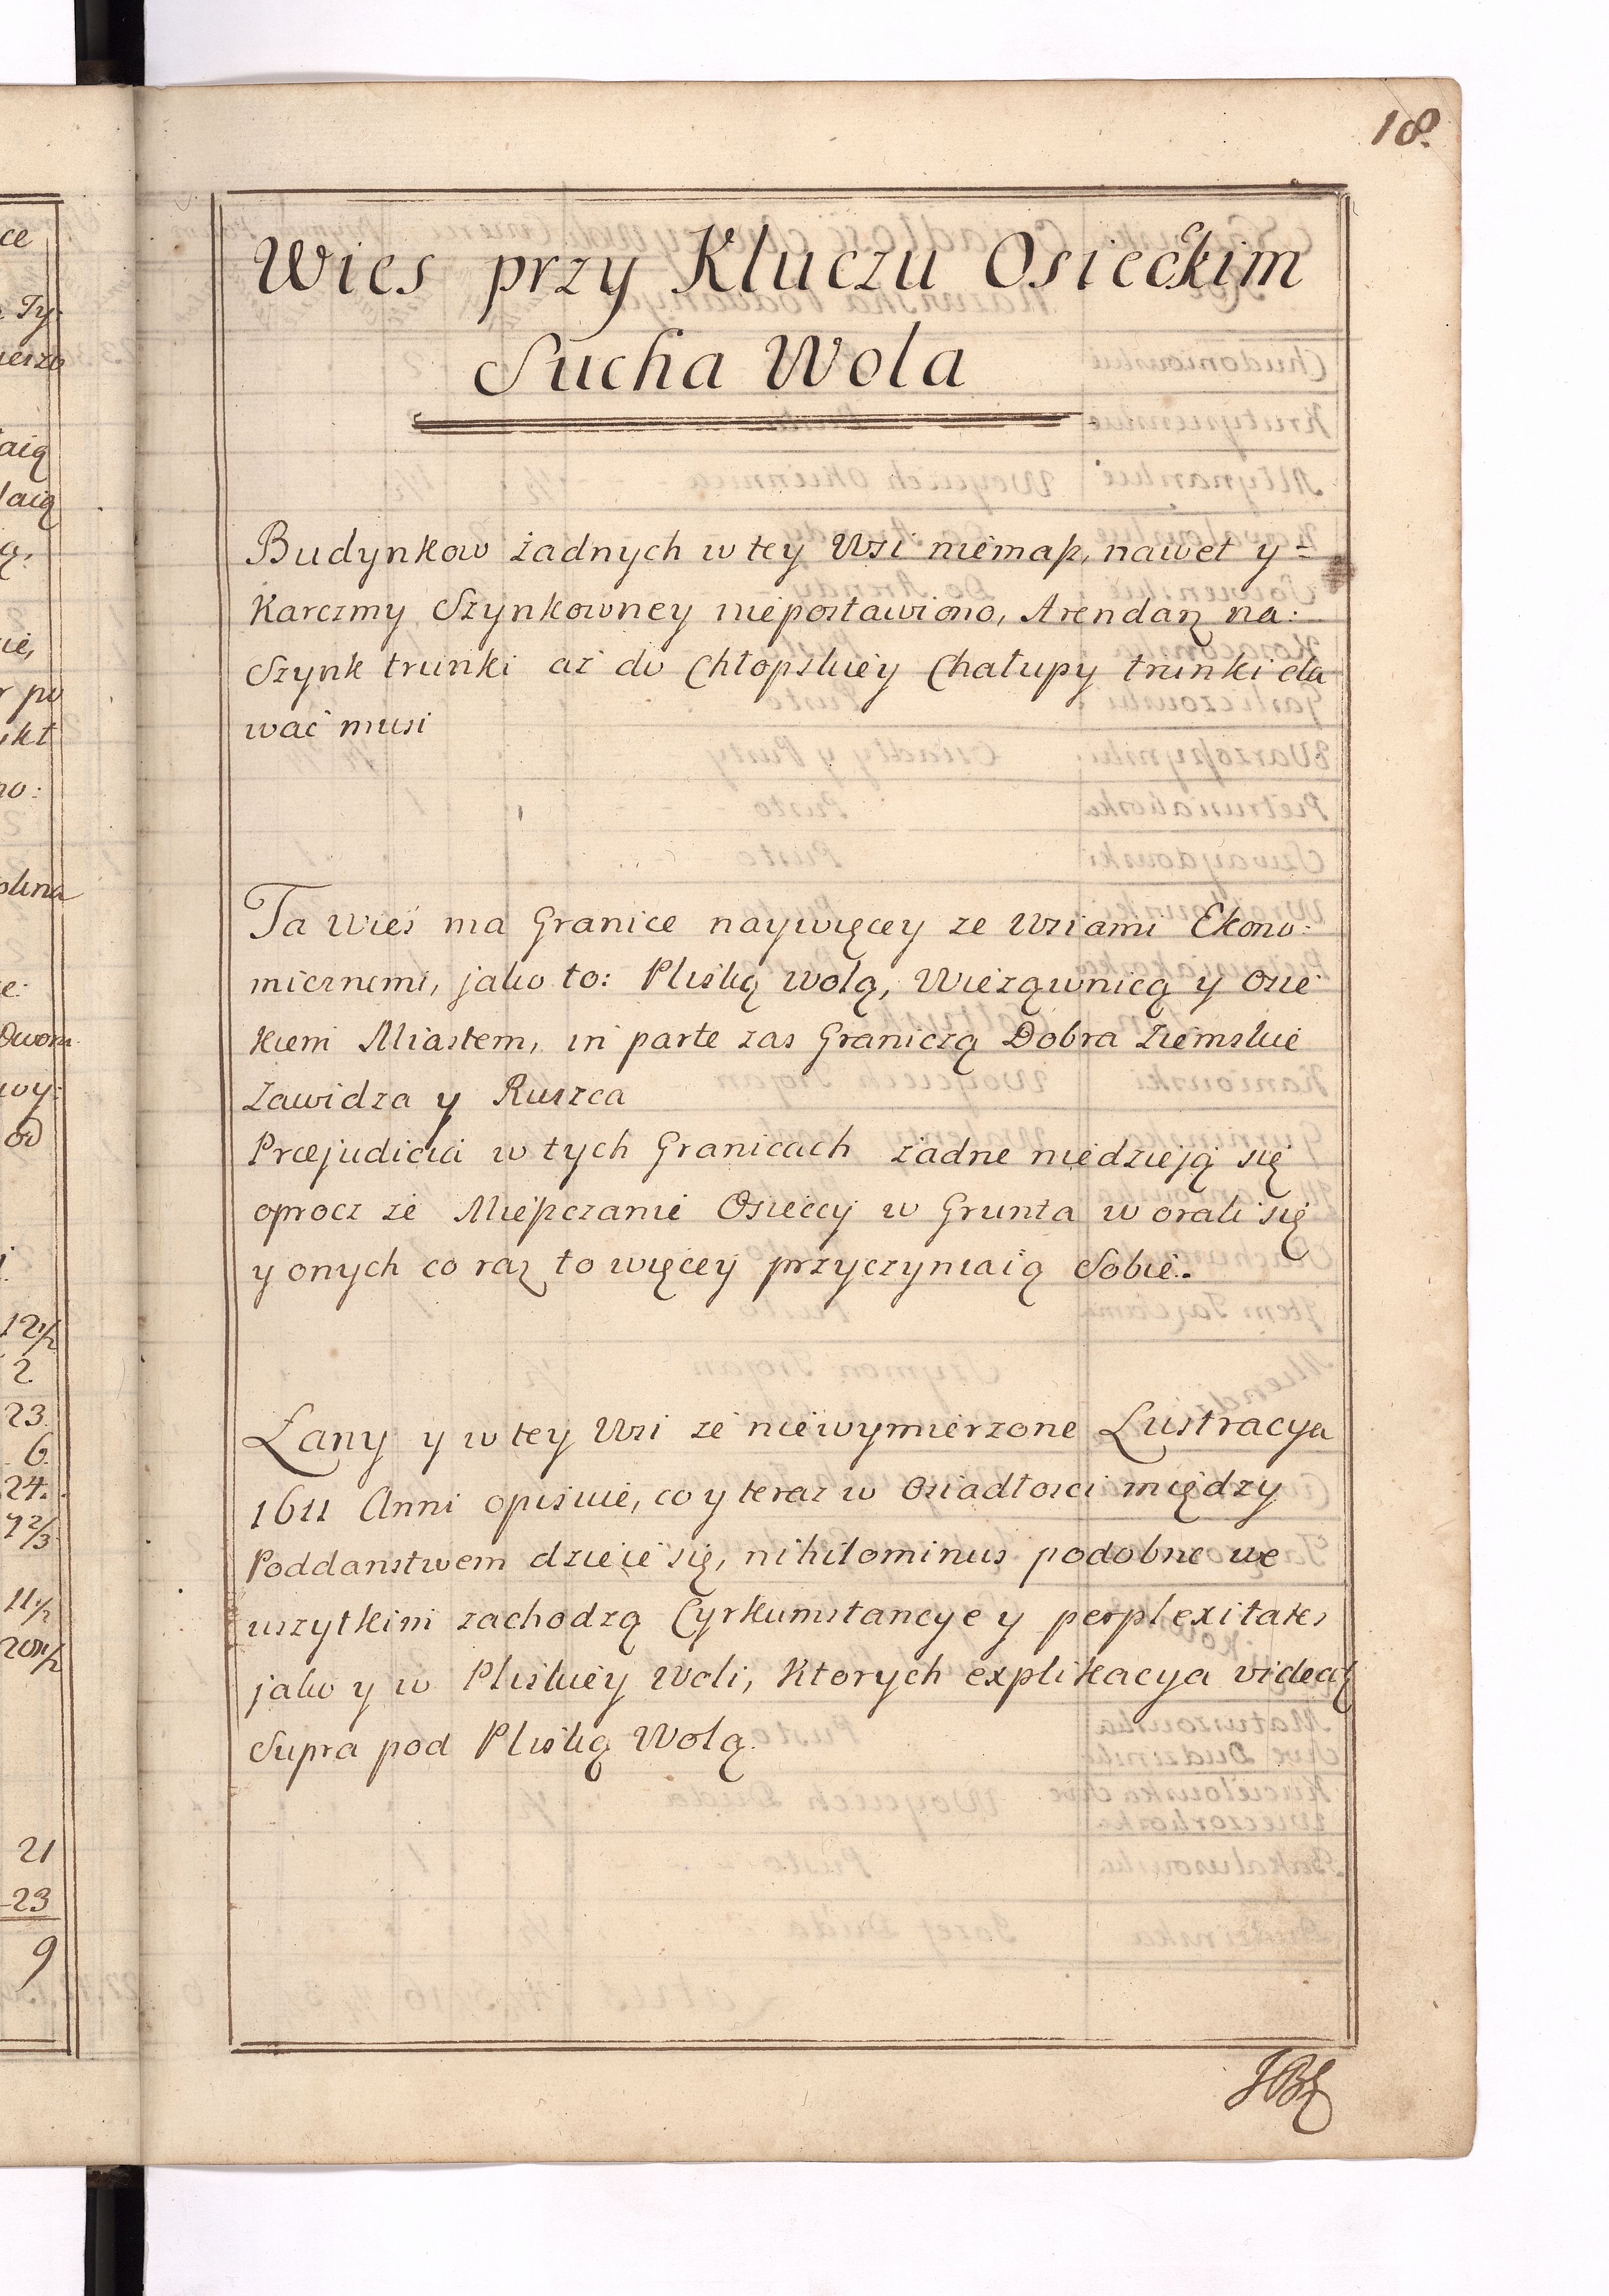 18.
Wies przy Kluczu Osieckim
Sucha Wola
Budynkow żadnych w tey Wsi niémasz, nawet y =
Karczmy Szynkowney niepostawiono, Arendarz na:
Szynk trunki aż do Chłopskiéy Chałupy trunki da
wać musi
Ta Wieś ma Granice naywięcey ze Wsiami Ekono:
micznemi, jako to: Pliską Wolą, Wiéząwnicą y Osie
kiem Miastem, in parte zas Graniczą Dobra Ziémskie
Zawidza y Ruszca
Præjudicia w tych Granicach żadne niedzieją się
oprocz że Miészczanie Osieccy w Grunta w orali się
y onych co raz to więcey przyczyniaią Sobie.
Łany y w tey Wsi że niéwymierzone Lustracya
1611 Anni opisuie, co y teraz w Osiadłosci między
Poddanstwem dzieie się, nihilominus podobne we
wszytkim zachodzą Cyrkumstancye y perplexitates
jako y w Pliskiéy Woli, Ktorych explikacya videatz
Supra pod Pliską Wolą.
ce
Ty:
aią
po
ikt
no:
wy:
od
12 1/2
2.
23.
6.
24.
7 2/3
11 1/2
21
23
9